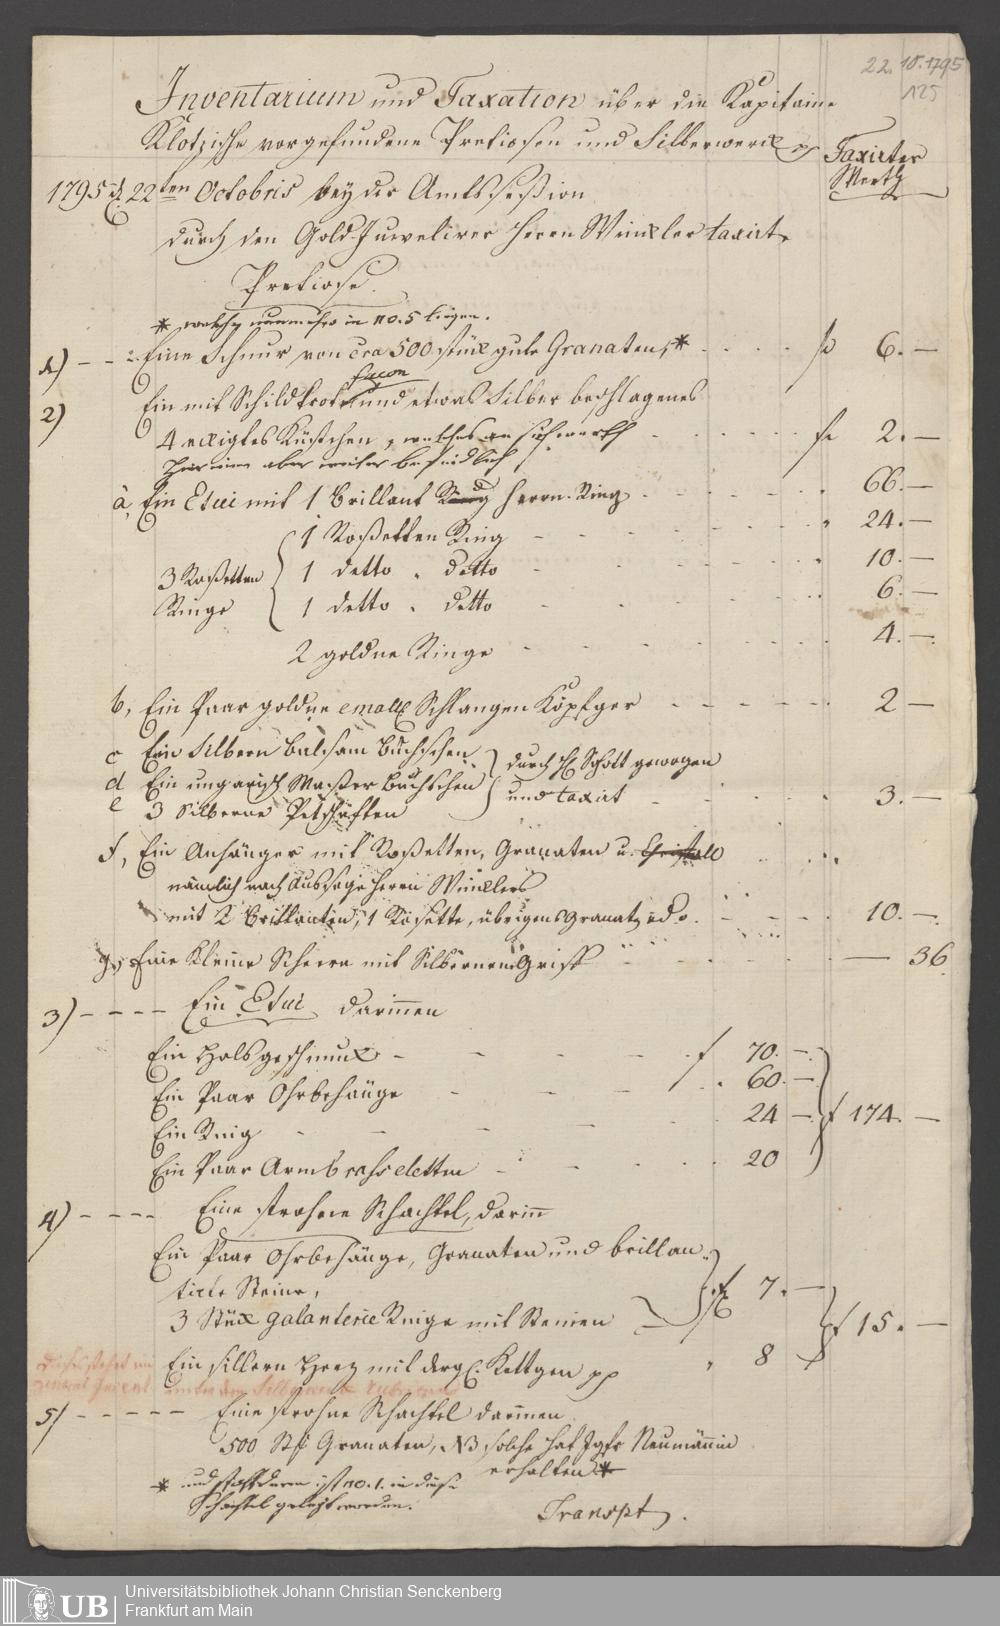 22.10.1795
125
Inventarium und Taxation über die Kapitaine
Klotzische vorgefundene Pretiosen und Silberwerck pp
Taxirter
Werth
1795 d. 22ten Octobris bey der Amtssession
durch den Gold Juwelirer Herrn Winkler taxirt.
Pretiose.
* welche nunmehro in no. 5 liegen.
1) - - Eine Schnur von cra 500 stük gute Granaten, * f 6. —
facon
2) Ein mit Schildkrot und etwas Silber beschlagenes
4 eckigtes Küstchen, welches an sich werth f 2. —
hierinn aber weiter befindlich
a, Ein Etui mit 1 Brillant Ring Herrn-Ring 66. —
1 Roßetten Ring 24. —
3 Roßetten 1 detto " detto 10. —
Ringe 1 detto " detto 6. —
2 goldne Ringe 4. —
b, Ein Paar goldne emall. Schlangen Köpfger 2 —
c Ein Silbern Balsam Büchschen durch H. Schott gewogen
d Ein ungarisch Waßer Büchschen und taxirt
e 3 Silberne Petschafften 3. —
f, Ein Anhänger mit Roßetten, Granaten u. Cristall
nämlich nach Aussage Herrn Wincklers
mit 2 Brillanten, 1 Rosette, übrigens Granat 10. —
g, Eine kleine Scheere mit Silbernem Griff — 36
3) - - - - Ein Etui, darinnen
Ein Halsgeschmuk - f 70. —
Ein Paar Ohrbehänge 60. —
Ein Ring 24 — f 174. —
Ein Paar Armbrasseletten 20
4) - - - - Eine strohne Schachtel, darinn
Ein Paar Ohrbehänge, Granaten und brillan-
tirte Steine, f 7. —
3 Stük galanterie Ringe mit Steinen f 15. —
Ein silbern Herz mit dergl. Kettgen pp " 8
5) - - - - - Eine strohne Schachtel darinnen
500 St. Granaten, NB solche hat Jgfr Neumännin
erhalten *
* und statt deren ist no. 1. in diese
Schachtel gelegt worden.
Transpt.
UB
Universitätsbibliothek Johann Christian Senckenberg
Frankfurt am Main